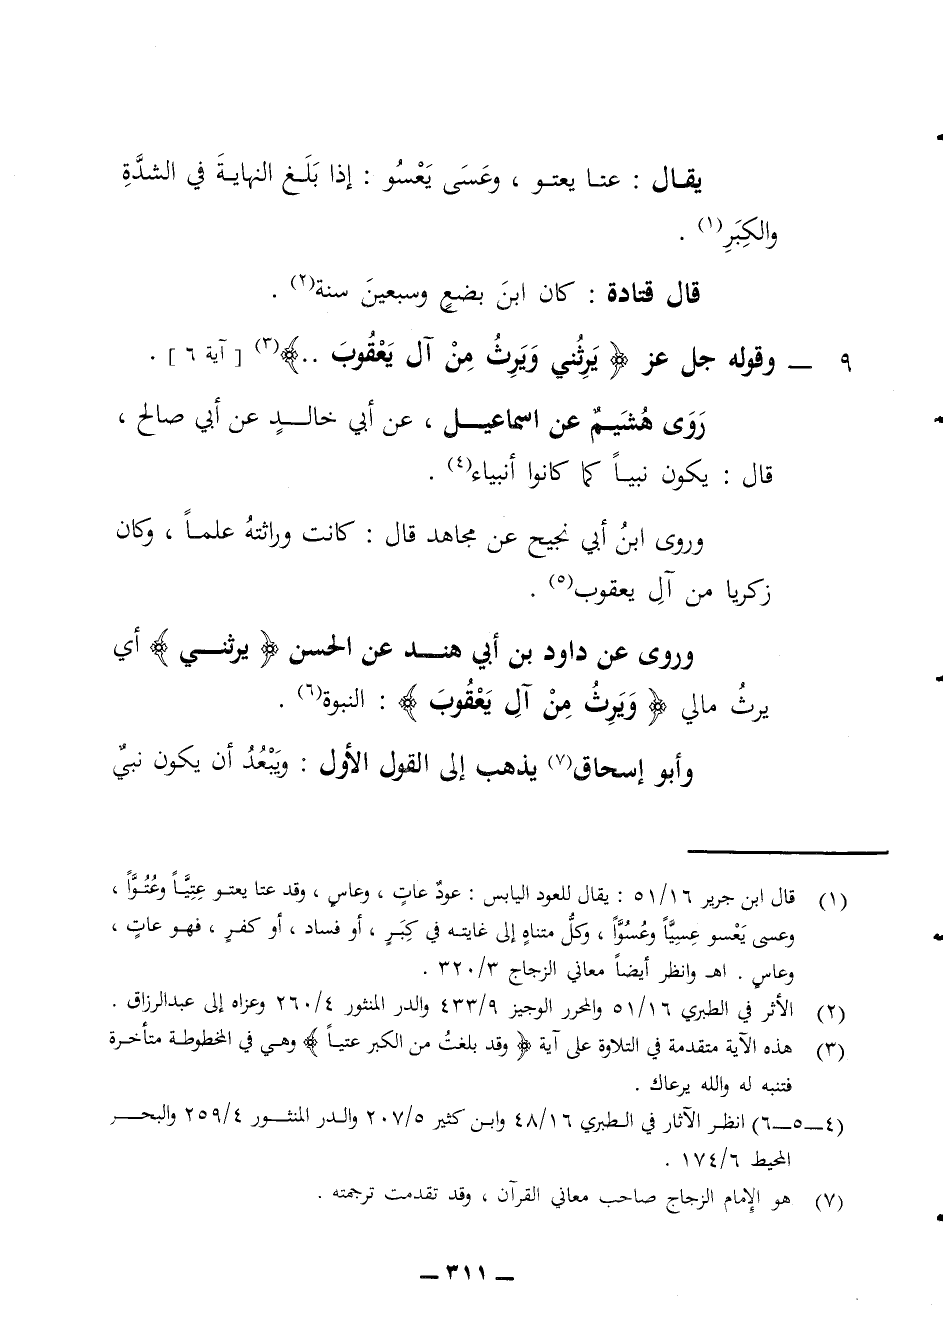 يقال : عتا يعتو ، وعَسَى يَعْسُو : إذا بَلَغ النهايةَ في الشدَّةِ
والكِبَرِ(١) .
قال قتادة : كان ابنَ بضعٍ وسبعينَ سنة(٢) .
٩ ــ وقوله جل عز ﴿ يَرِثُني وَيَرِثُ مِنْ آل يَعْقُوبَ ..﴾(٣) [ آية ٦ ] .
رَوَى هُشَيمٌ عن اسماعيل ، عن أبي خالدٍ عن أبي صالح ،
قال : يكون نبياً كما كانوا أنبياء(٤) .
وروى ابنُ أبي نجيح عن مجاهد قال : كانت وراثتهُ علماً ، وكان
زكريا من آلِ يعقوب(٥) .
وروى عن داود بن أبي هند عن الحسن ﴿ يرثني ﴾ أي
يرثُ مالي ﴿ وَيَرِثُ مِنْ آلِ يَعْقُوبَ ﴾ : النبوة(٦) .
وأبو إسحاق(٧) يذهب إلى القول الأول : ويَبْعُدُ أن يكون نبيٌ
(١) قال ابن جرير ٥١/١٦ : يقال للعود اليابس : عودٌ عاتٍ ، وعاسٍ ، وقد عتا يعتو عِتِيَّاً وعُتُوَّاً ،
وعسى يَعْسو عِسِيَّاً وعُسُوَّاً ، وكلُّ متناهٍ إلى غايته في كِبَرٍ ، أو فساد ، أو كفرٍ ، فهو عاتٍ ،
وعاسٍ . اهـ وانظر أيضاً معاني الزجاج ٣٢٠/٣ .
(٢) الأثر في الطبري ٥١/١٦ والمحرر الوجيز ٤٣٣/٩ والدر المنثور ٢٦٠/٤ وعزاه إلى عبدالرزاق .
(٣) هذه الآية متقدمة في التلاوة على آية ﴿ وقد بلغتُ من الكبر عتياً ﴾ وهي في المخطوطة متأخرة
فتنبه له والله يرعاك .
(٤ــ٥ــ٦) انظر الآثار في الطبري ٤٨/١٦ وابن كثير ٢٠٧/٥ والدر المنثور ٢٥٩/٤ والبحر
المحيط ١٧٤/٦ .
(٧) هو الإمام الزجاج صاحب معاني القرآن ، وقد تقدمت ترجمته .
ــ ٣١١ ــ